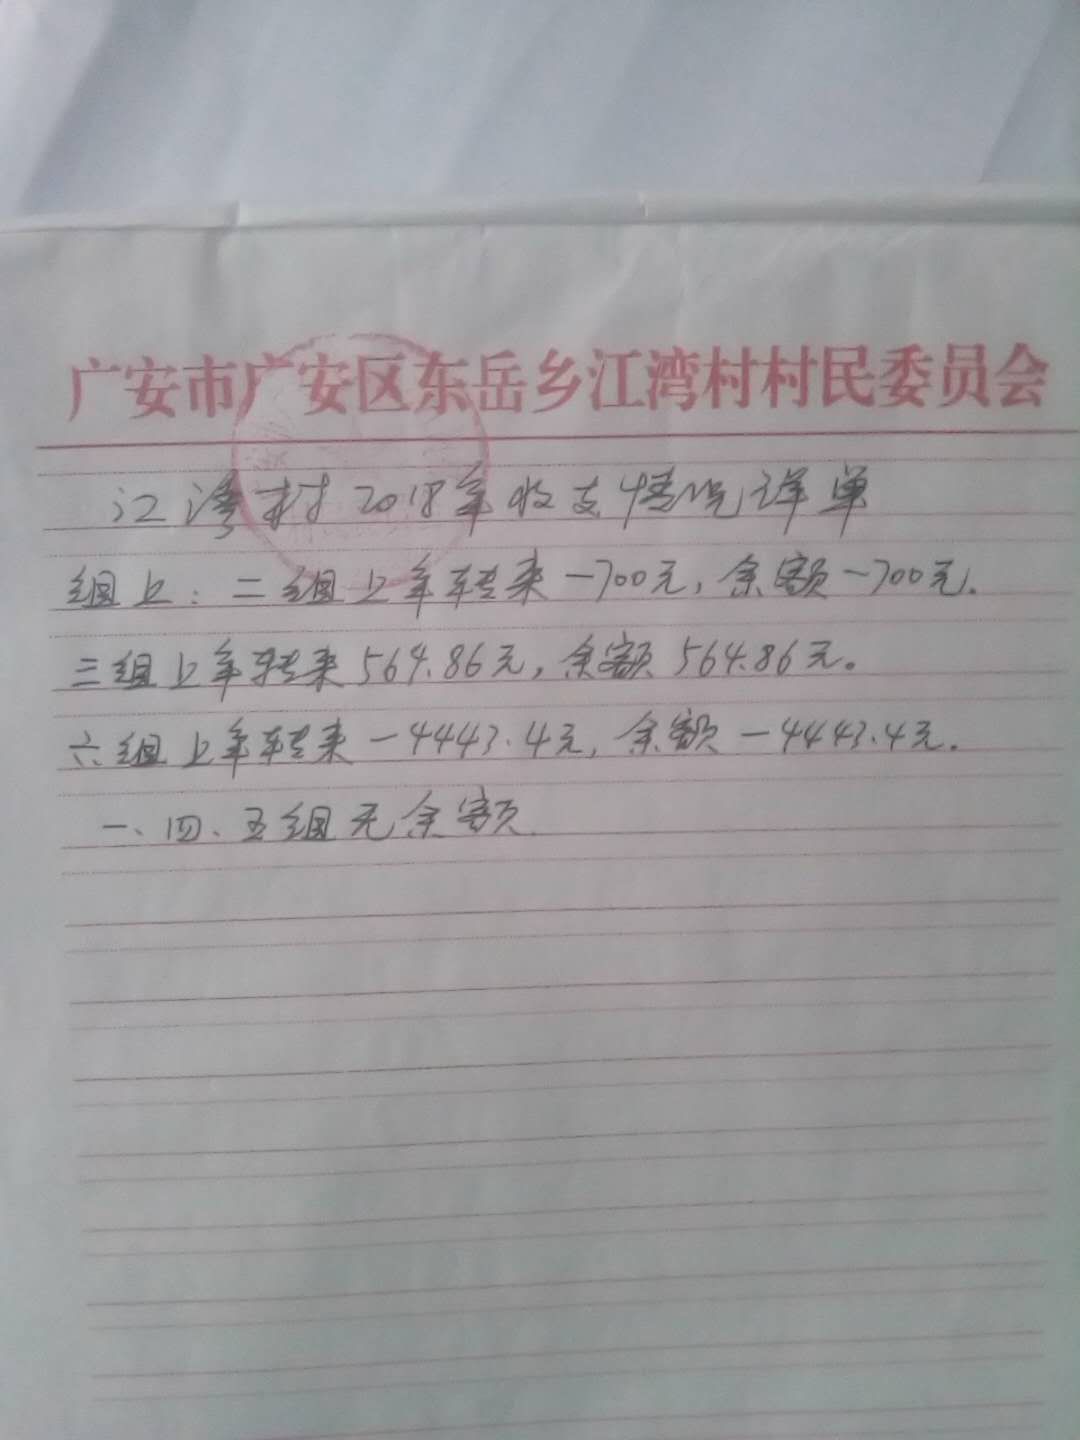 广安市广安区东岳乡江湾村村民委员会
江湾村2018年收支情况详单
组上：二组上年转来-700元,余额-700元.
三组上年转来564.86元,余额564.86元。
六组上年转来-4443.4元,余额-4443.4元.
一、四、五组无余额.